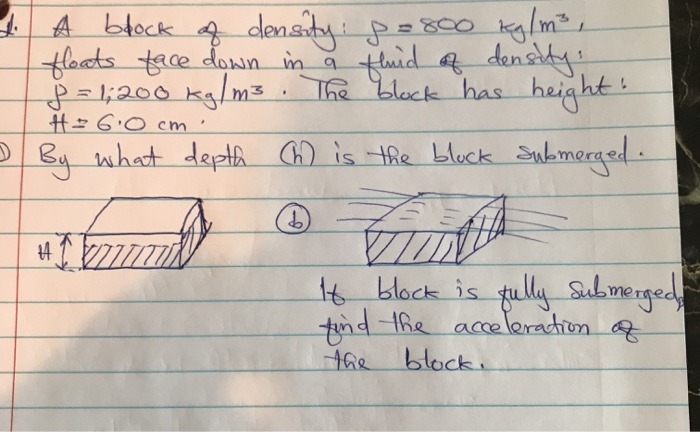 1. A block of density: ρ = 800 kg/m³,
floats face down in a fluid of density:
ρ = 1,200 kg/m³. The block has height:
H = 6.0 cm.
By what depth (h) is the block submerged.
H
(b)
If block is fully submerged,
find the acceleration of
the block.